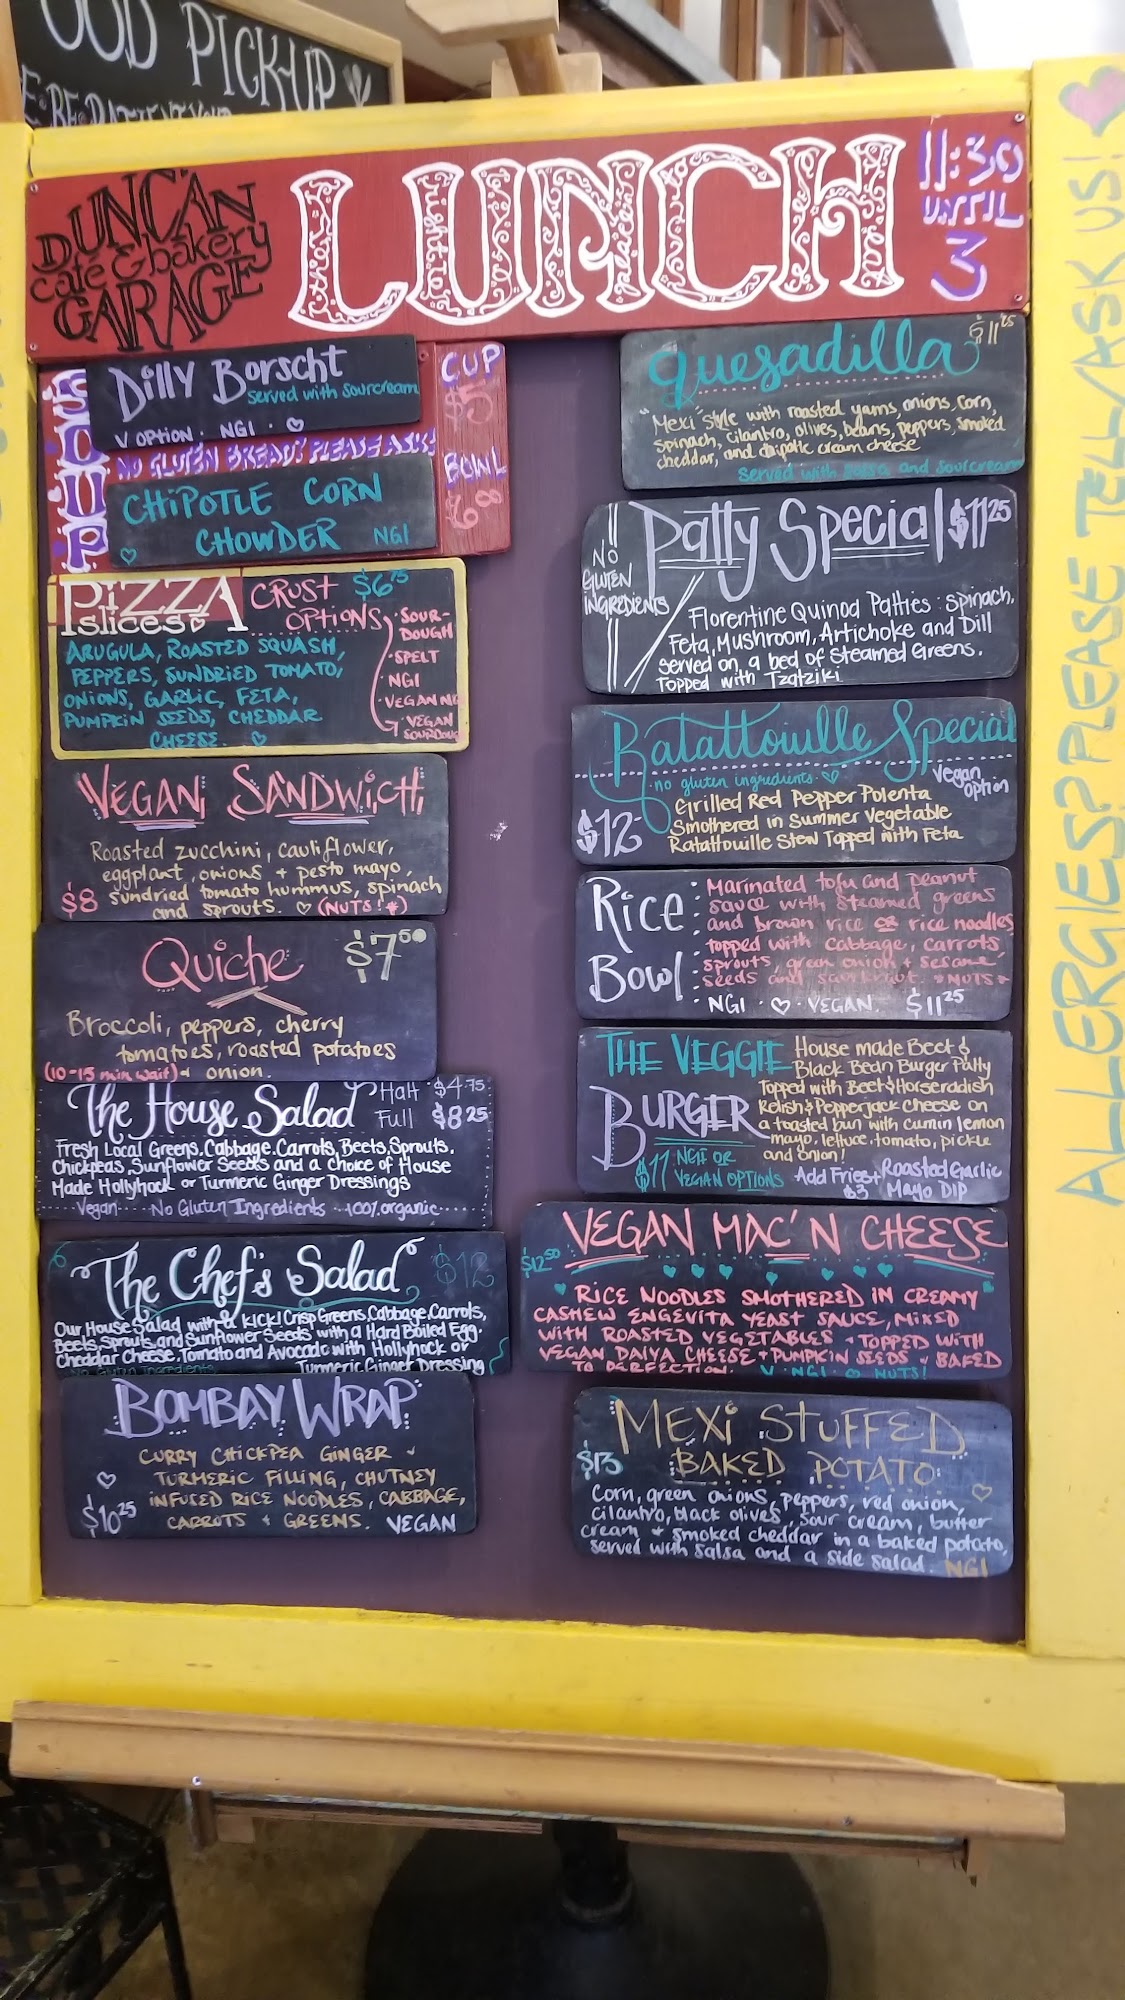 OOD PICK-UP
E·BE·PATIENT YOUR
DUNCAN
cafe & bakery
GARAGE
LUNCH
11:30
UNTIL
3
SOUP
Dilly Borscht
served with sourcream
V OPTION · NGI ·
NO GLUTEN BREAD? PLEASE ASK!
CHIPOTLE CORN
CHOWDER NGI
CUP
$5
BOWL
PIZZA
slices
CRUST
OPTIONS
$6.75
· SOUR-
DOUGH
· SPELT
· NGI
· VEGAN NG
· VEGAN
SOURDOUG
ARUGULA, ROASTED SQUASH,
PEPPERS, SUNDRIED TOMATO,
ONIONS, GARLIC, FETA,
PUMPKIN SEEDS, CHEDDAR
CHEESE.
VEGAN SANDWICH
Roasted zucchini, cauliflower,
eggplant, onions + pesto mayo,
sundried tomato hummus, spinach
and sprouts. (NUTS!*)
$8
Quiche $7.50
Broccoli, peppers, cherry
tomatoes, roasted potatoes
(10-15 min wait) + onion.
The House Salad
Half $4.75
Full $8.25
Fresh Local Greens, Cabbage, Carrots, Beets, Sprouts,
Chickpeas, Sunflower Seeds and a choice of House
Made Hollyhock or Turmeric Ginger Dressings
Vegan ···· No Gluten Ingredients ··· 100% organic
The Chef's Salad $12
Our House Salad with a KICK! Crisp Greens, Cabbage, Carrots,
Beets, Sprouts and Sunflower Seeds with a Hard Boiled Egg,
Cheddar Cheese, Tomato and Avocado with Hollyhock or
Turmeric Ginger Dressing
No Gluten Ingredients
BOMBAY WRAP
CURRY CHICKPEA GINGER +
TURMERIC FILLING, CHUTNEY
INFUSED RICE NOODLES, CABBAGE,
CARROTS + GREENS. VEGAN
$10.25
Quesadilla
"Mexi" style with roasted yams, onions, corn,
spinach, cilantro, olives, beans, peppers, smoked
cheddar, and chipotle cream cheese
Served with salsa and sourcream
Patty Special $11.25
NO
GLUTEN
INGREDIENTS
Florentine Quinoa Patties: Spinach,
Feta, Mushroom, Artichoke and Dill
served on a bed of Steamed Greens.
Topped with Tzatziki
Ratattouille Special
· no gluten ingredients ·
Vegan
option
$12
Grilled Red Pepper Polenta
Smothered in Summer Vegetable
Ratattouille Stew Topped with Feta
Rice
Bowl
Marinated tofu and peanut
sauce with steamed greens
and brown rice or rice noodles
topped with cabbage, carrots
sprouts, green onion + sesame
seeds and sauerkraut. *NUTS*
NGI · VEGAN. $11.25
THE VEGGIE
BURGER
House made Beet &
Black Bean Burger Patty
Topped with Beet & Horseradish
Relish & Pepperjack cheese on
a toasted bun with cumin lemon
mayo, lettuce, tomato, pickle
and onion!
$11 NGI OR
VEGAN OPTIONS
Add Fries + Roasted Garlic
$3 Mayo Dip
VEGAN MAC'N CHEESE
$12.50
RICE NOODLES SMOTHERED IN CREAMY
CASHEW ENGEVITA YEAST SAUCE, MIXED
WITH ROASTED VEGETABLES + TOPPED WITH
VEGAN DAIYA CHEESE + PUMPKIN SEEDS + BAKED
TO PERFECTION. V · NGI · NUTS!
MEXI STUFFED
BAKED POTATO
$13
Corn, green onions, peppers, red onion,
cilantro, black olives, sour cream, butter
cream + smoked cheddar in a baked potato,
served with salsa and a side salad. NGI
ALLERGIES? PLEASE TELL/ASK US!